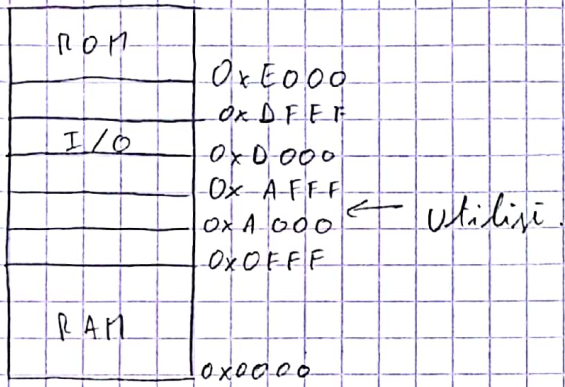 ROM
0xE000
0xDFFF
I/O
0xD000
0xAFFF
0xA000 ← Utilisé.
0x0FFF
RAM
0x0000